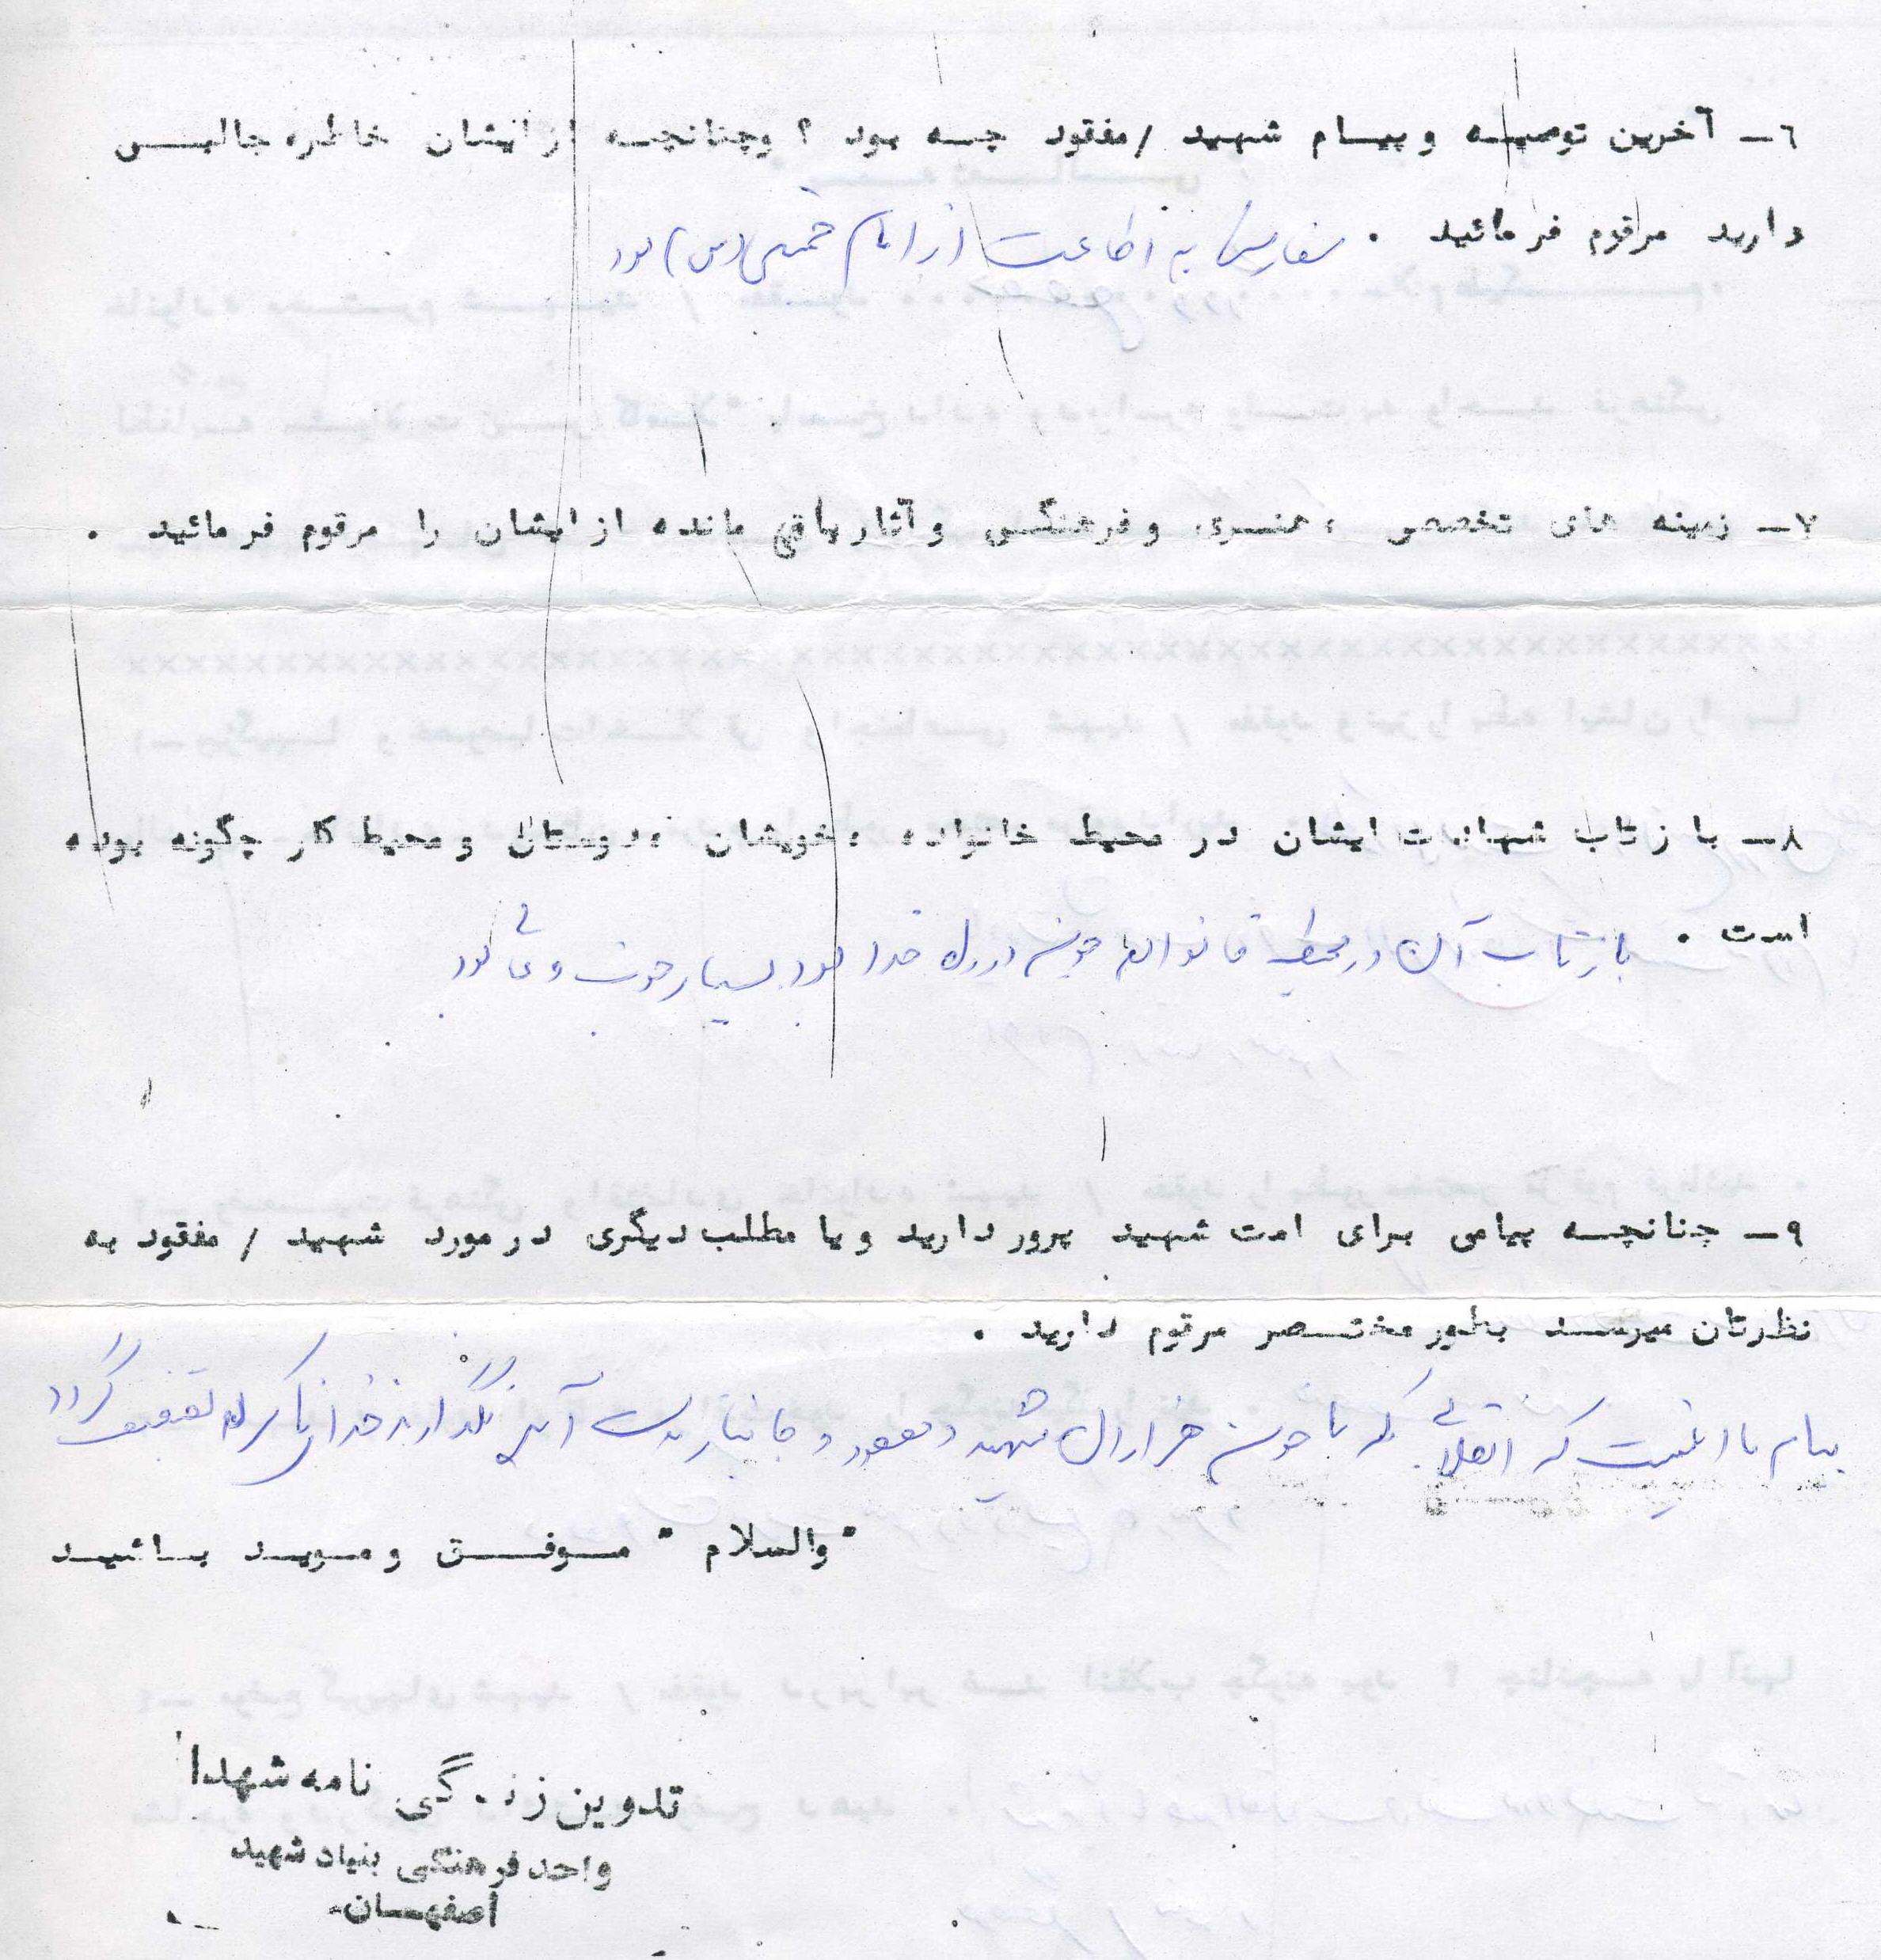 ٦ــ آخرین توصیـه وپیـام شهید /مفقود چـه بود ؟ وچنانچـه ازایشان خاطره جالبـی
دارید مرقوم فرمائید . سفارش به اطاعت از امام خمینی (ره) بود
٧ــ زمینه های تخصصی ، هنـری، وفرهنگـی وآثارباقی مانده ازایشان را مرقوم فرمائید .
٨ــ بازتاب شهادت ایشان در محیط خانواده ،خویشان ،دوستان ومحیط کار چگونه بوده
است . بازتاب آن در محیط خانواده چون در راه خدا بود بسیار خوب و عالی بود
٩ــ چنانچـه پیامی برای امت شهید پرور دارید ویا مطلب دیگری درمورد شهید / مفقود به
نظرتان میرسـد بطور مختـصر مرقوم دارید .
پیام ما اینست که انقلابی که با خون هزاران شهید و مفقود و جانباز بدست آمد نگذارند خدای ناکرده تضعیف گردد
"والسلام " مـوفـق ومـویـد بـاشیـد
تدوین زندگی نامه شهدا
واحد فرهنگی بنیاد شهید
اصفهـان-